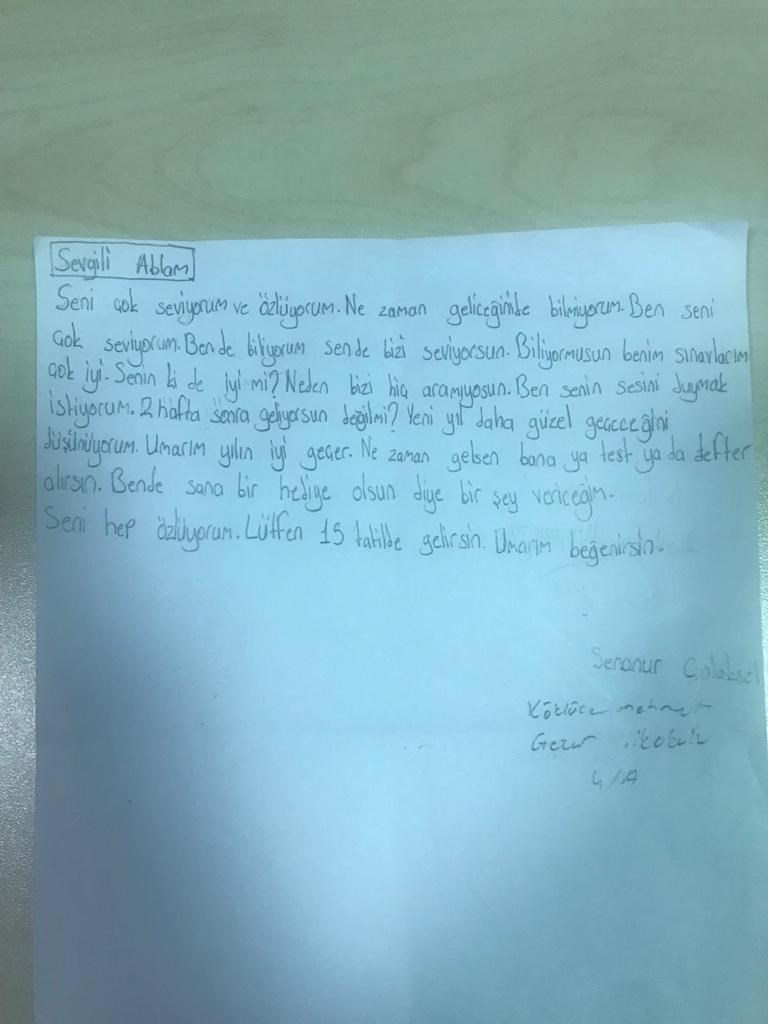 Sevgili Ablam
Seni çok seviyorum ve özlüyorum. Ne zaman geliceğinide bilmiyorum. Ben seni
çok seviyorum. Bende biliyorum sende bizi seviyorsun. Biliyormusun benim sınavlarım
çok iyi. Senin ki de iyi mi? Neden bizi hiç aramıyosun. Ben senin sesini duymak
istiyorum. 2 hafta sonra geliyorsun değilmi? Yeni yıl daha güzel geçeceğini
düşünüyorum. Umarım yılın iyi geçer. Ne zaman gelsen bana ya test ya da defter
alırsın. Bende sana bir hediye olsun diye bir şey vericeğim.
Seni hep özlüyorum. Lütfen 15 tatilde gelirsin. Umarım beğenirsin.
Senanur
4/A